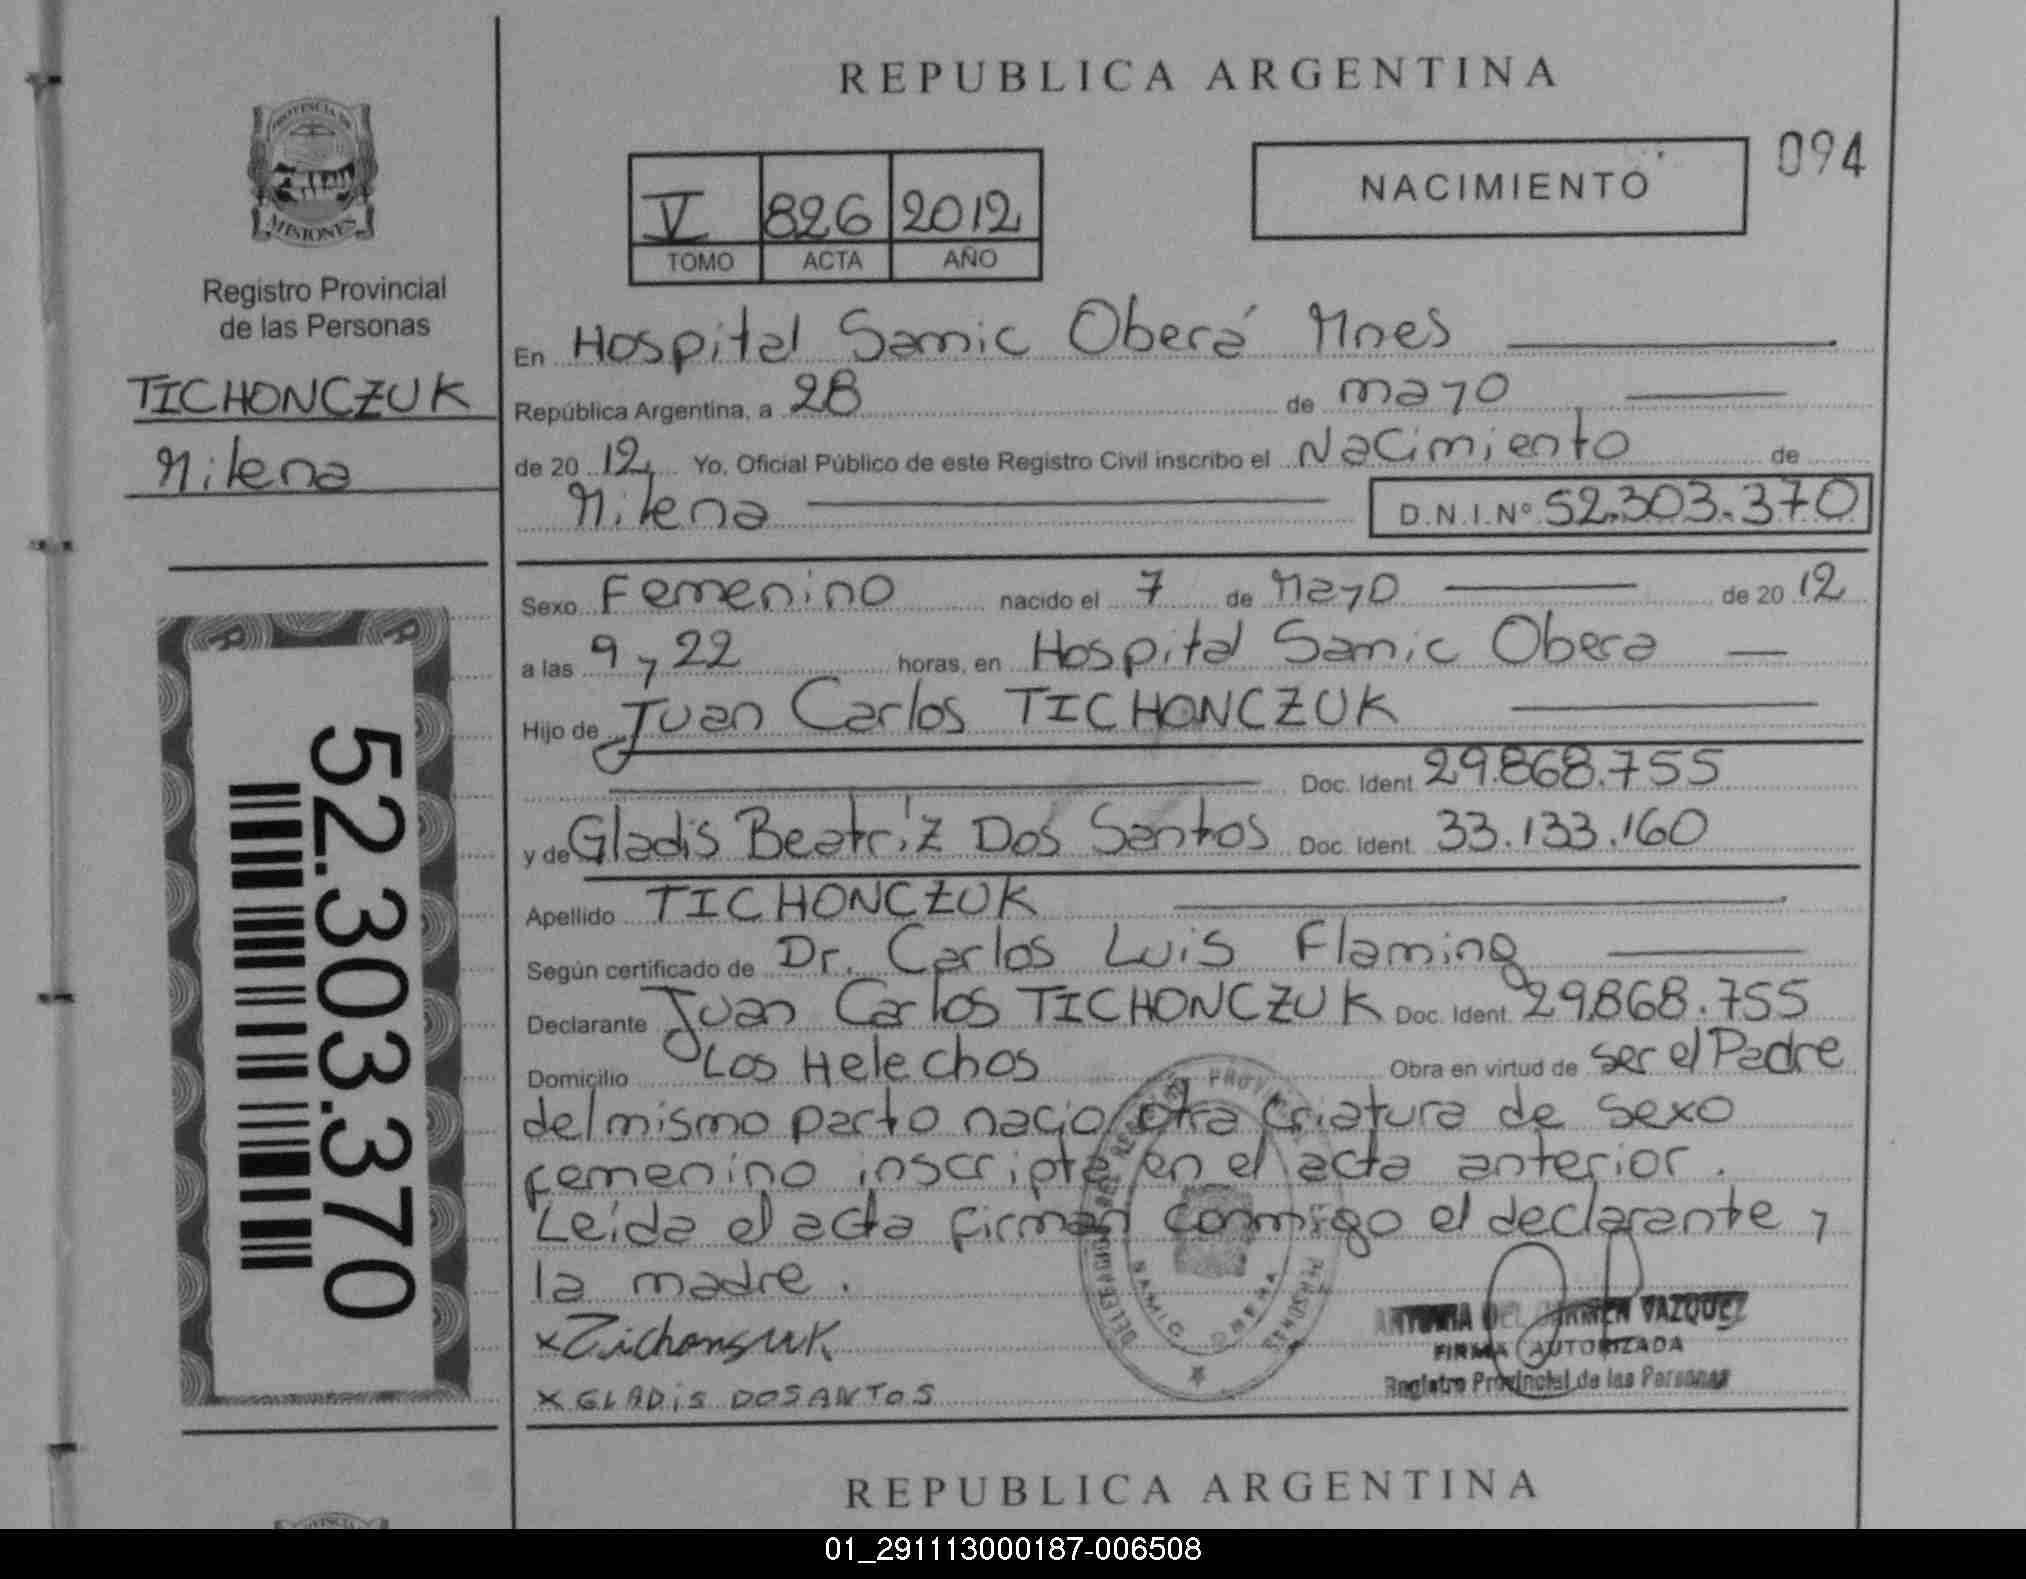 REPUBLICA ARGENTINA
094
NACIMIENTO
V 826 2012
TOMO ACTA AÑO
PROVINCIA DE
MISIONES
Registro Provincial
de las Personas
TICHONCZUK
Milena
52.303.370
En Hospital Samic Oberá Mnes
República Argentina, a 28 de mayo
de 20 12 Yo, Oficial Público de este Registro Civil inscribo el Nacimiento de
Milena D.N.I.Nº 52.303.370
Sexo Femenino nacido el 7 de Mayo de 20 12
a las 9 y 22 horas, en Hospital Samic Obera
Hijo de Juan Carlos TICHONCZUK
Doc. Ident. 29.868.755
y de Gladis Beatriz Dos Santos Doc. Ident. 33.133.160
Apellido TICHONCZUK
Según certificado de Dr. Carlos Luis Flaming
Declarante Juan Carlos TICHONCZUK Doc. Ident. 29.868.755
Domicilio Los Helechos Obra en virtud de ser el Padre
del mismo parto nacio otra criatura de sexo
femenino inscripta en el acta anterior.
Leida el acta firman conmigo el declarante y
la madre.
x Tichonszuk
x GLADiS DOSANTOS
SAMIC OBERA
DEL CARMEN VAZQUEZ
FIRMA AUTORIZADA
Registro Provincial de las Personas
REPUBLICA ARGENTINA
01_291113000187-006508